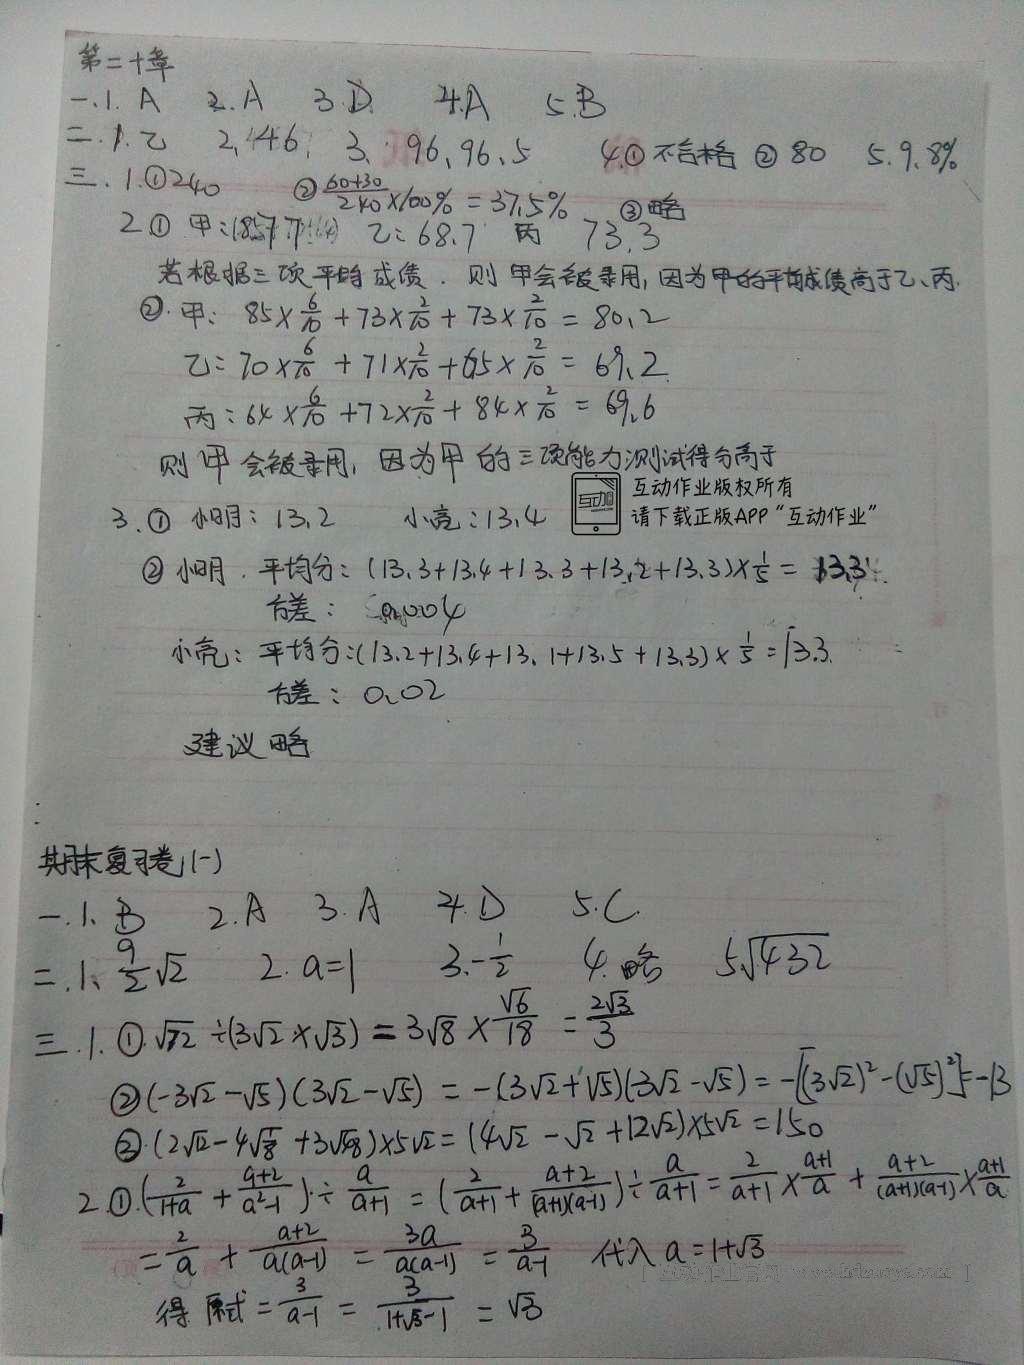 第二十章
一.1. A 2. A 3. D. 4. A 5. B
二.1. 乙 2, 146, 3. 96, 96.5 4.① 不合格 ② 80 5. 9.8%
三.1.①240 ② (60+30)/240 ×100% = 37.5% ③略
2① 甲: 乙: 68.7 丙 73.3
若根据三项平均成绩. 则甲会被录用, 因为甲的平均成绩高于乙、丙.
②. 甲: 85×6/10 + 73×2/10 + 73×2/10 = 80.2
乙: 70×6/10 + 71×2/10 + 65×2/10 = 69.2
丙: 64×6/10 + 72×2/10 + 84×2/10 = 69.6
则甲会被录用, 因为甲的三项能力测试得分高于
互动 互动作业版权所有
请下载正版APP“互动作业”
3.① 小明: 13.2 小亮: 13.4
② 小明. 平均分: (13.3+13.4+13.3+13.2+13.3)×1/5 = 13.3
方差: 0.004
小亮: 平均分:(13.2+13.4+13.1+13.5+13.3)×1/5=13.3.
方差: 0.02
建议略
期末复习卷(一)
一.1. B 2. A 3. A 4. D 5. C.
二.1. 9/2√2 2. a=1 3. -1/2 4. 略 5√432
三.1.①√72÷(3√2×√3) = 3√8×√6/18 = 2√3/3
②(-3√2-√5)(3√2-√5) = -(3√2+√5)(3√2-√5) = -[(3√2)²-(√5)²]=-13
③(2√12-4√1/8+3√48)×5√2=(4√2-√2+12√2)×5√2=150
2.①(2/(1+a) + (a+2)/(a²-1))÷a/(a+1) = (2/(a+1) + (a+2)/((a+1)(a-1)))÷a/(a+1) = 2/(a+1)×(a+1)/a + (a+2)/((a+1)(a-1))×(a+1)/a
= 2/a + (a+2)/(a(a-1)) = 3a/(a(a-1)) = 3/(a-1) 代入a=1+√3
得原式=3/(a-1) = 3/(1+√3-1) = √3